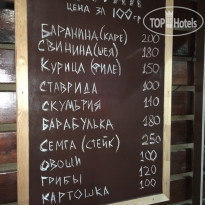 TOP Hotels
ЦЕНА ЗА 100гр
БАРАНИНА(КАРЕ) 200
СВИНИНА(ШЕЯ) 180
КУРИЦА (ФИЛЕ) 150
СТАВРИДА 100
СКУМБРИЯ 110
БАРАБУЛЬКА 180
СЕМГА (СТЕЙК) 250
ОВОЩИ 100
ГРИБЫ 120
КАРТОШКА 100